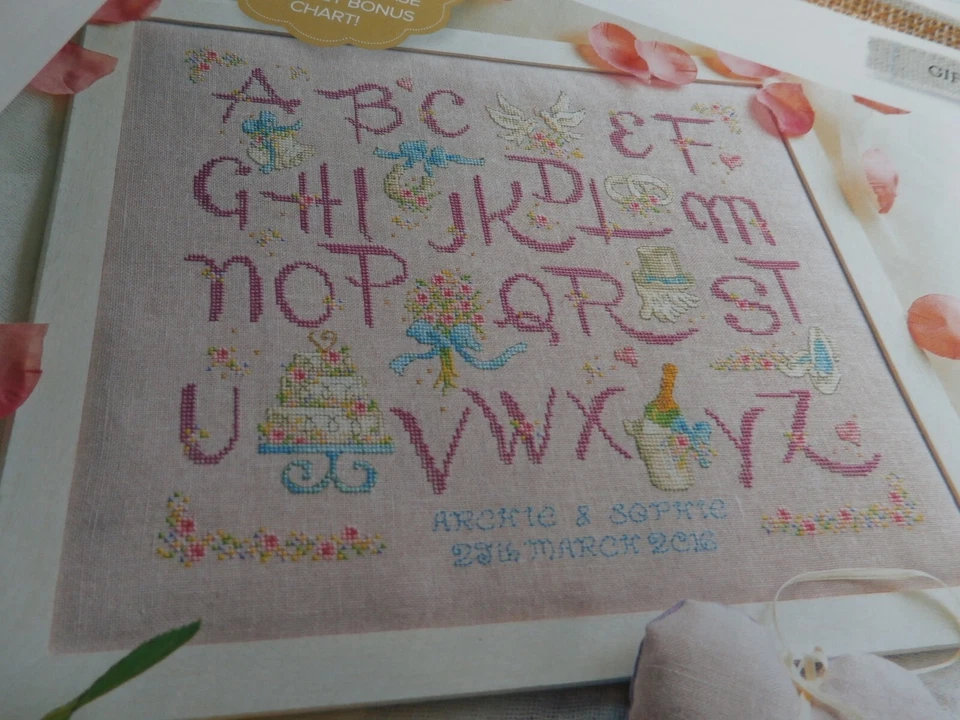 BONUS
CHART!
A B C E F
G H I J K D L M
N O P Q R S T
U V W X Y Z
ARCHIE & SOPHIE
MARCH 2016